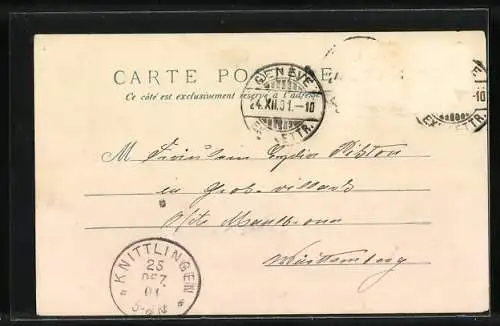 CARTE PO
Ce côté est exclusivement réservé à l'adresse
GENÈVE
24.XII.01.-10
EXP. LETTR.
-10
EXP. LETTR.
M Fräulein Lydia
in Gross-villars
Maulbronn
Württemberg
KNITTLINGEN
25
DEZ
01
5-6N